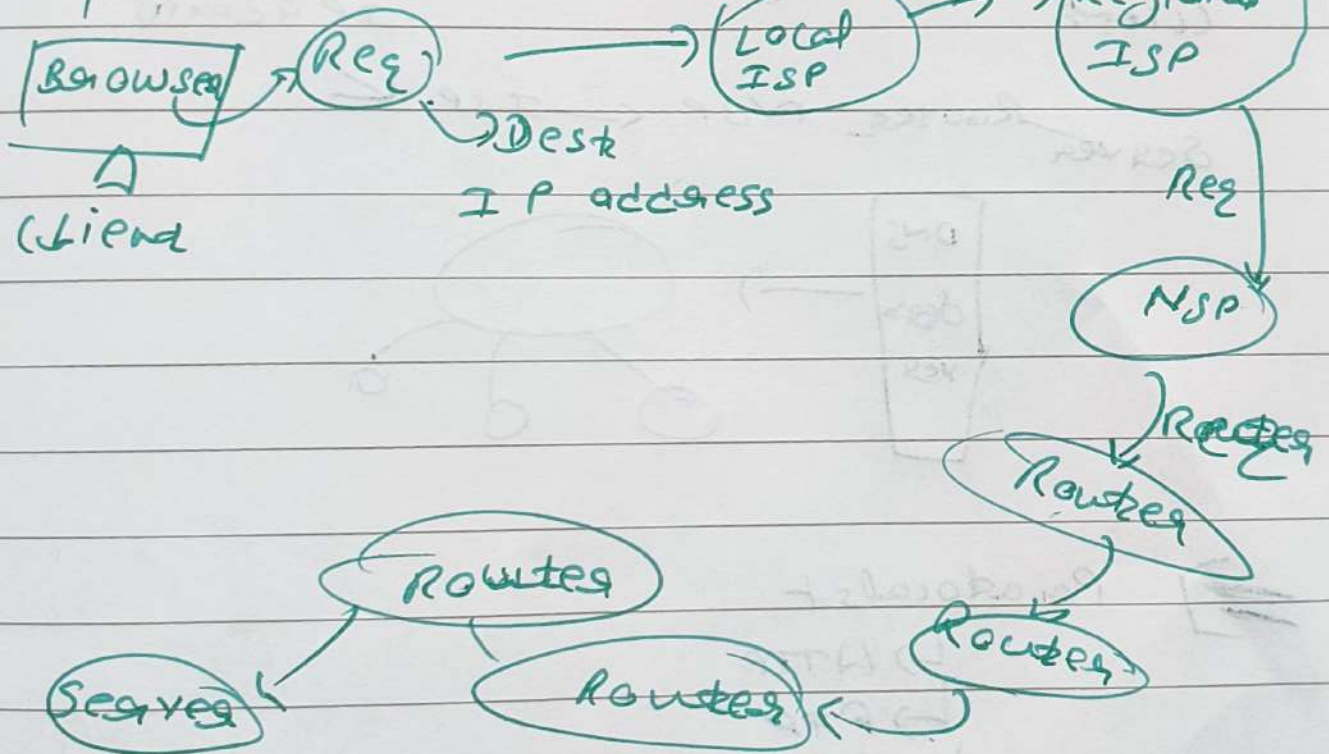 Browser
Req
Local
ISP
Regional
ISP
Dest
IP address
Client
Req
NSP
Router
Router
Router
Router
Server